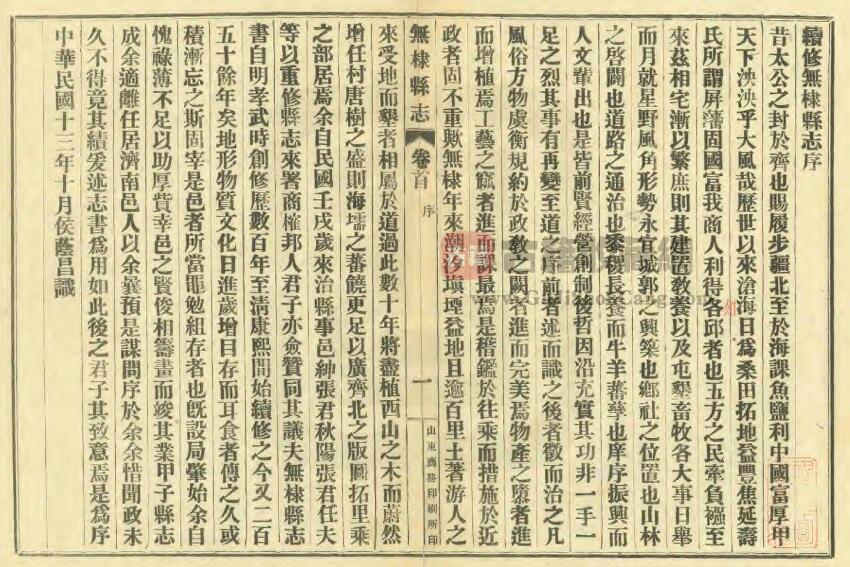 續修無棣縣志序
昔太公之封於齊也賜履步疆北至於海課魚鹽利中國富厚甲
天下泱泱乎大風哉歷世以來滄海日為桑田拓地益豐焦延壽
氏所謂屏藩固國富我商人利得各邱者也五方之民牽負襁至
來茲相宅漸以繁庶則其建置敎養以及屯墾畜牧各大事日舉
而月就星野風角形勢永宜城郭之興築也鄉社之位置也山林
之啓闢也道路之通治也黍稷長養而牛羊蕃孳也庠序振興而
人文輩出也是皆前賢經營創制後哲因沿充實其功非一手一
足之烈其事有再變至道之序前者述而識之後者徵而治之凡
風俗方物虞衡規約於政敎之闕者進而完美焉物產之墮者進
而增植焉工藝之窳者進而課最焉是稽鑑於往乘而措施於近
政者固不重歟無棣年來潮沙塡堙益地且逾百里土著游人之
無棣縣志
卷首
序
一
山東商務印刷所印
來受地而墾者相屬於道過此數十年將盡植西山之木而蔚然
增任村唐樹之盛則海壖之蕃饒更足以廣齊北之版圖拓里乘
之部居焉余自民國壬戌歲來治縣事邑紳張君秋陽張君任夫
等以重修縣志來署商榷邦人君子亦僉贊同其議夫無棣縣志
書自明孝武時創修歷數百年至淸康熙間始續修之今又二百
五十餘年矣地形物質文化日進歲增目存而耳食者傳之久或
積漸忘之斯固宰是邑者所當黽勉組存者也旣設局肇始余自
愧祿薄不足以助厚貲幸邑之賢俊相籌畫而竣其業甲子縣志
成余適離任居濟南邑人以余曩預是謀問序於余余惜聞政未
久不得竟其績爰述志書為用如此後之君子其致意焉是為序
中華民國十三年十月侯蔭昌識
古籍收藏網
www.GuJiShouCang.com